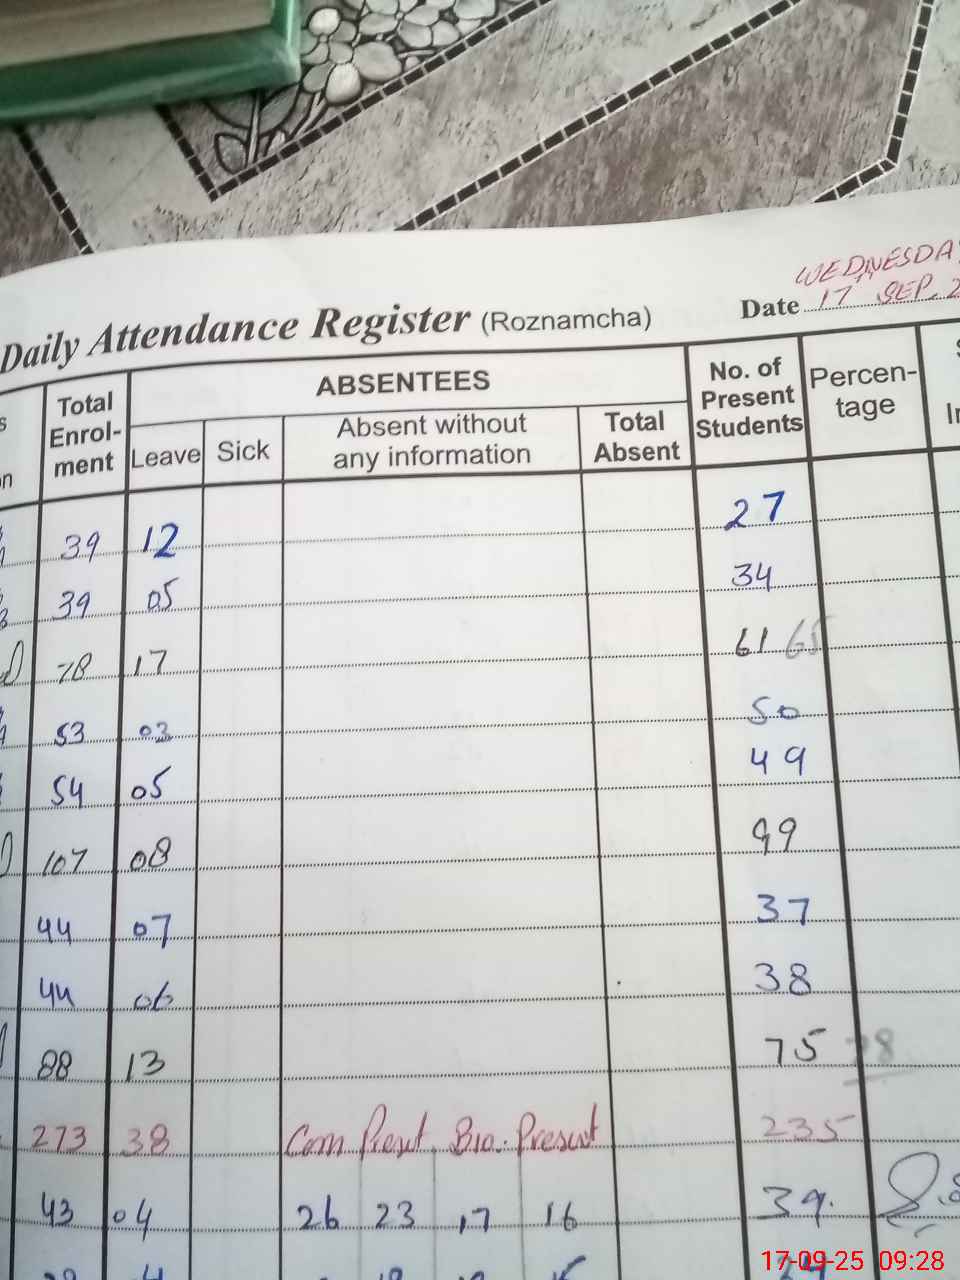 WEDNESDA
Daily Attendance Register (Roznamcha) Date 17 SEP. 2
Total Enrol-ment ABSENTEES No. of Present Students Percen-tage
Leave Sick Absent without any information Total Absent
39 12 27
39 05 34
78 17 61 65
53 03 50
54 05 49
107 08 99
44 07 37
44 06 38
88 13 75 78
273 38 Com Present Bio. Present 235
43 04 26 23 17 16 39.
17-09-25 09:28